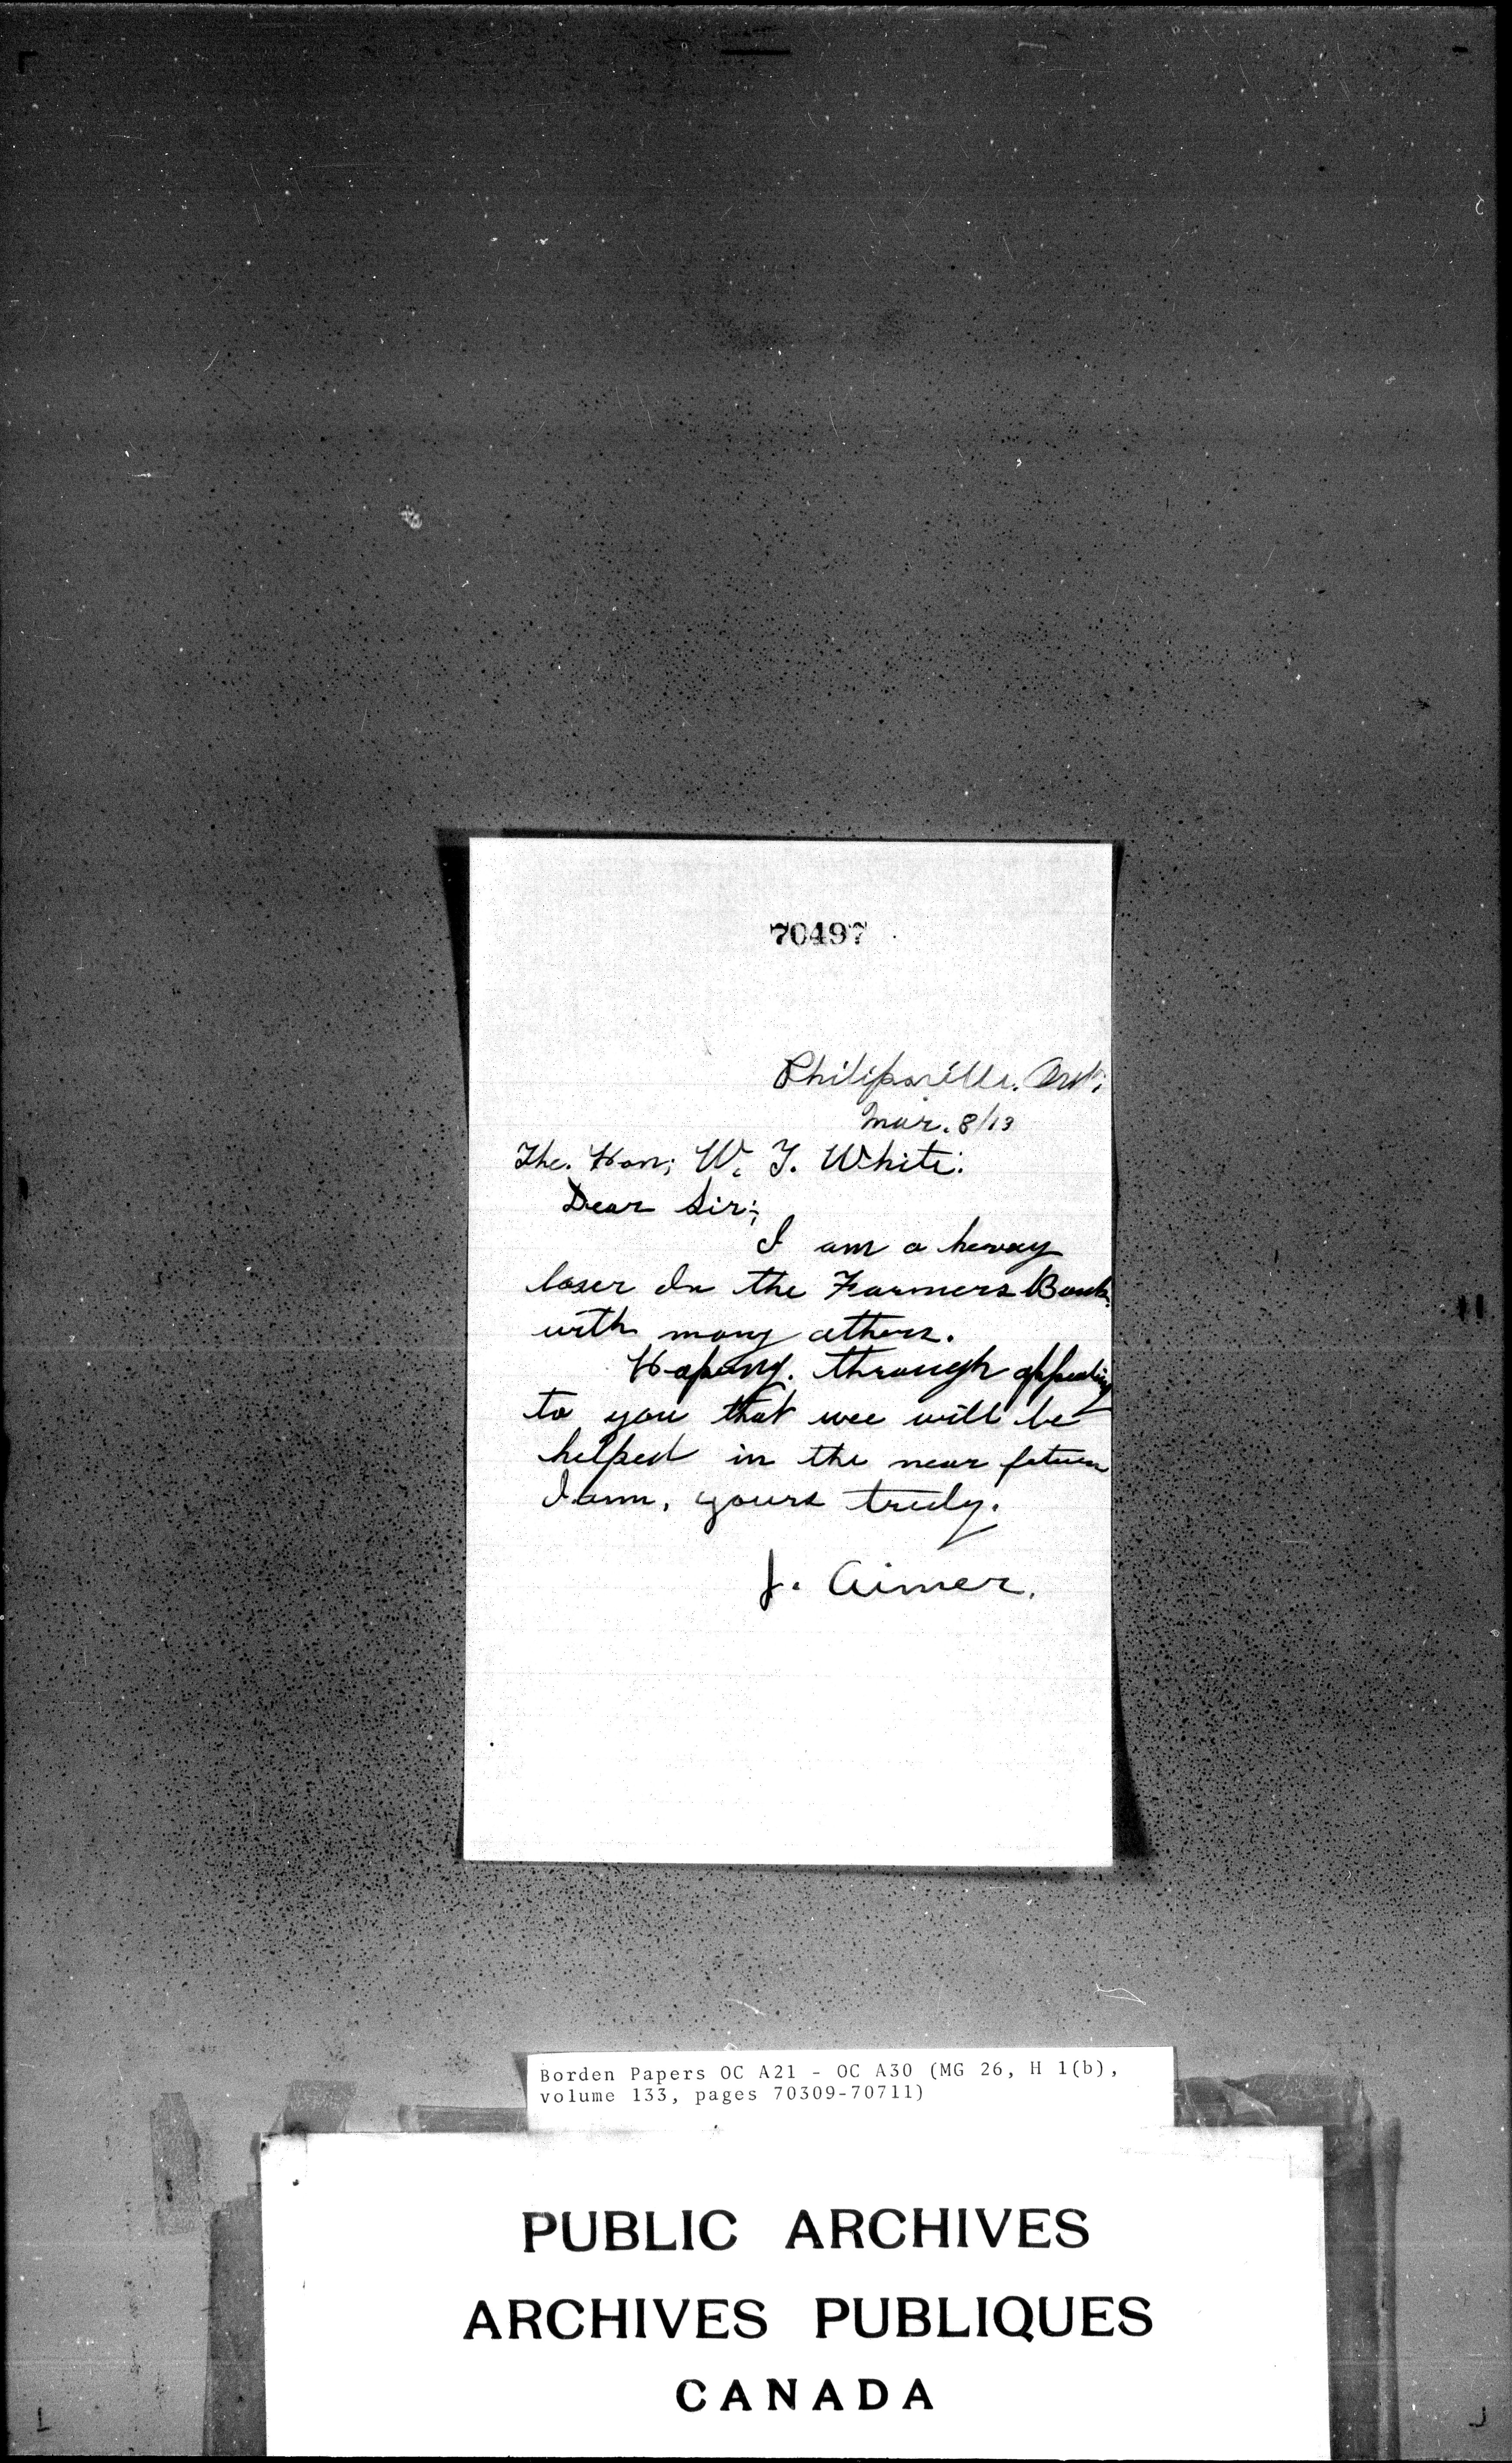 70497
Philipsville. Ont;
Mar. 8/13
The. Hon; W. T. White:
Dear Sir;
I am a hevay
loser In the Farmers Bank.
with many others.
Hoping. through appealing
to you that wee will be
helped in the near
I am, yours truly.
J. Aimer.
Borden Papers OC A21 - OC A30 (MG 26, H 1(b),
volume 133, pages 70309-70711)
PUBLIC ARCHIVES
ARCHIVES PUBLIQUES
CANADA